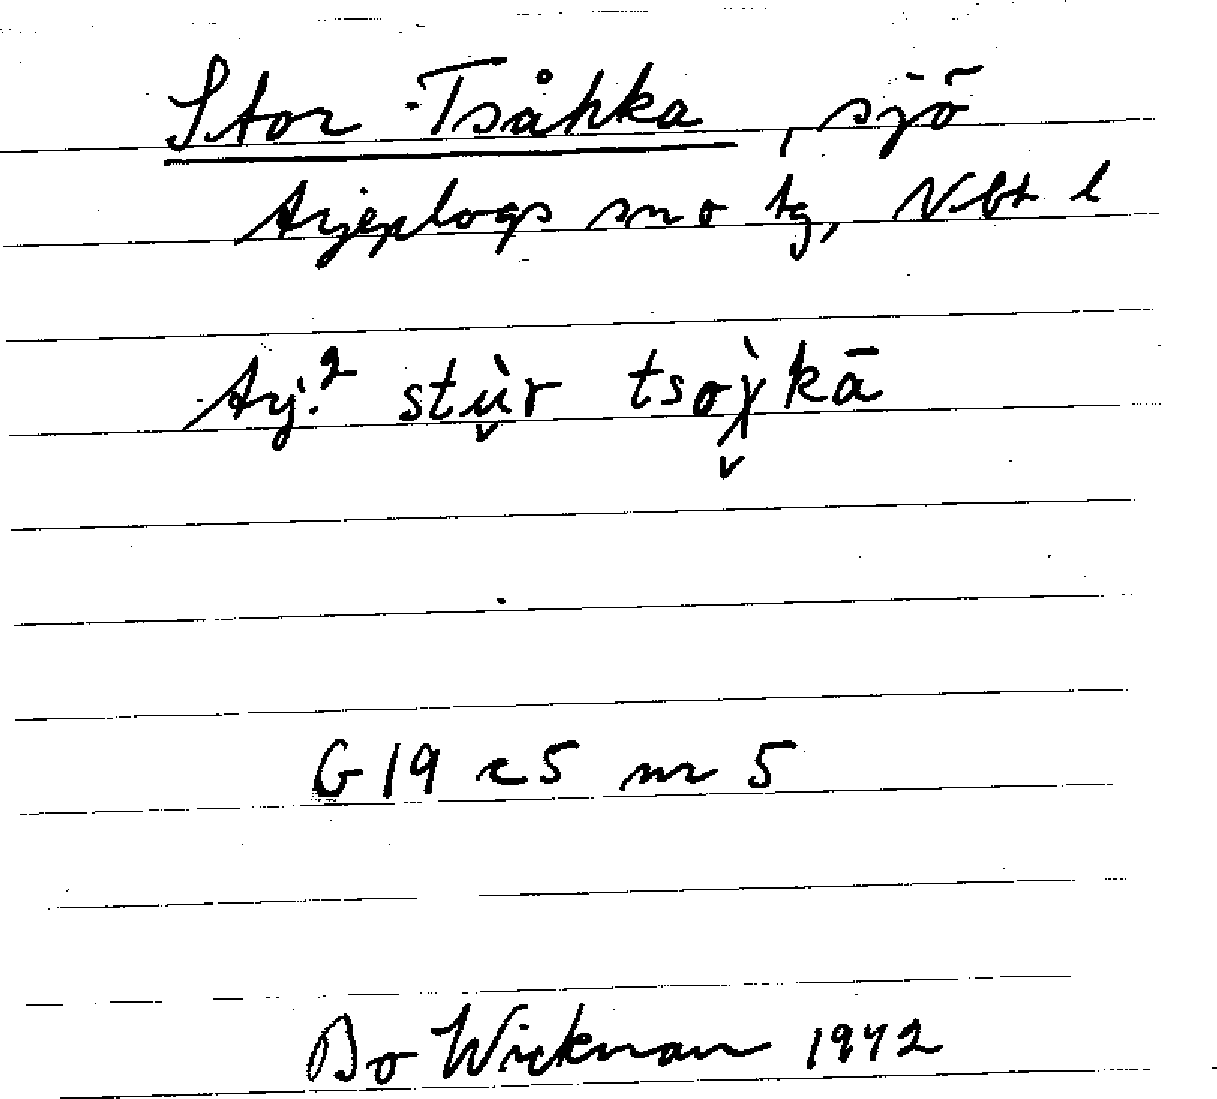 Stor-Tsåhka, sjö
Arjeplogs sn o tg, Nbt l
Arj.² stù̬r tsoɣ̬̀kā
G19 c5 nr 5
Bo Wickman 1942